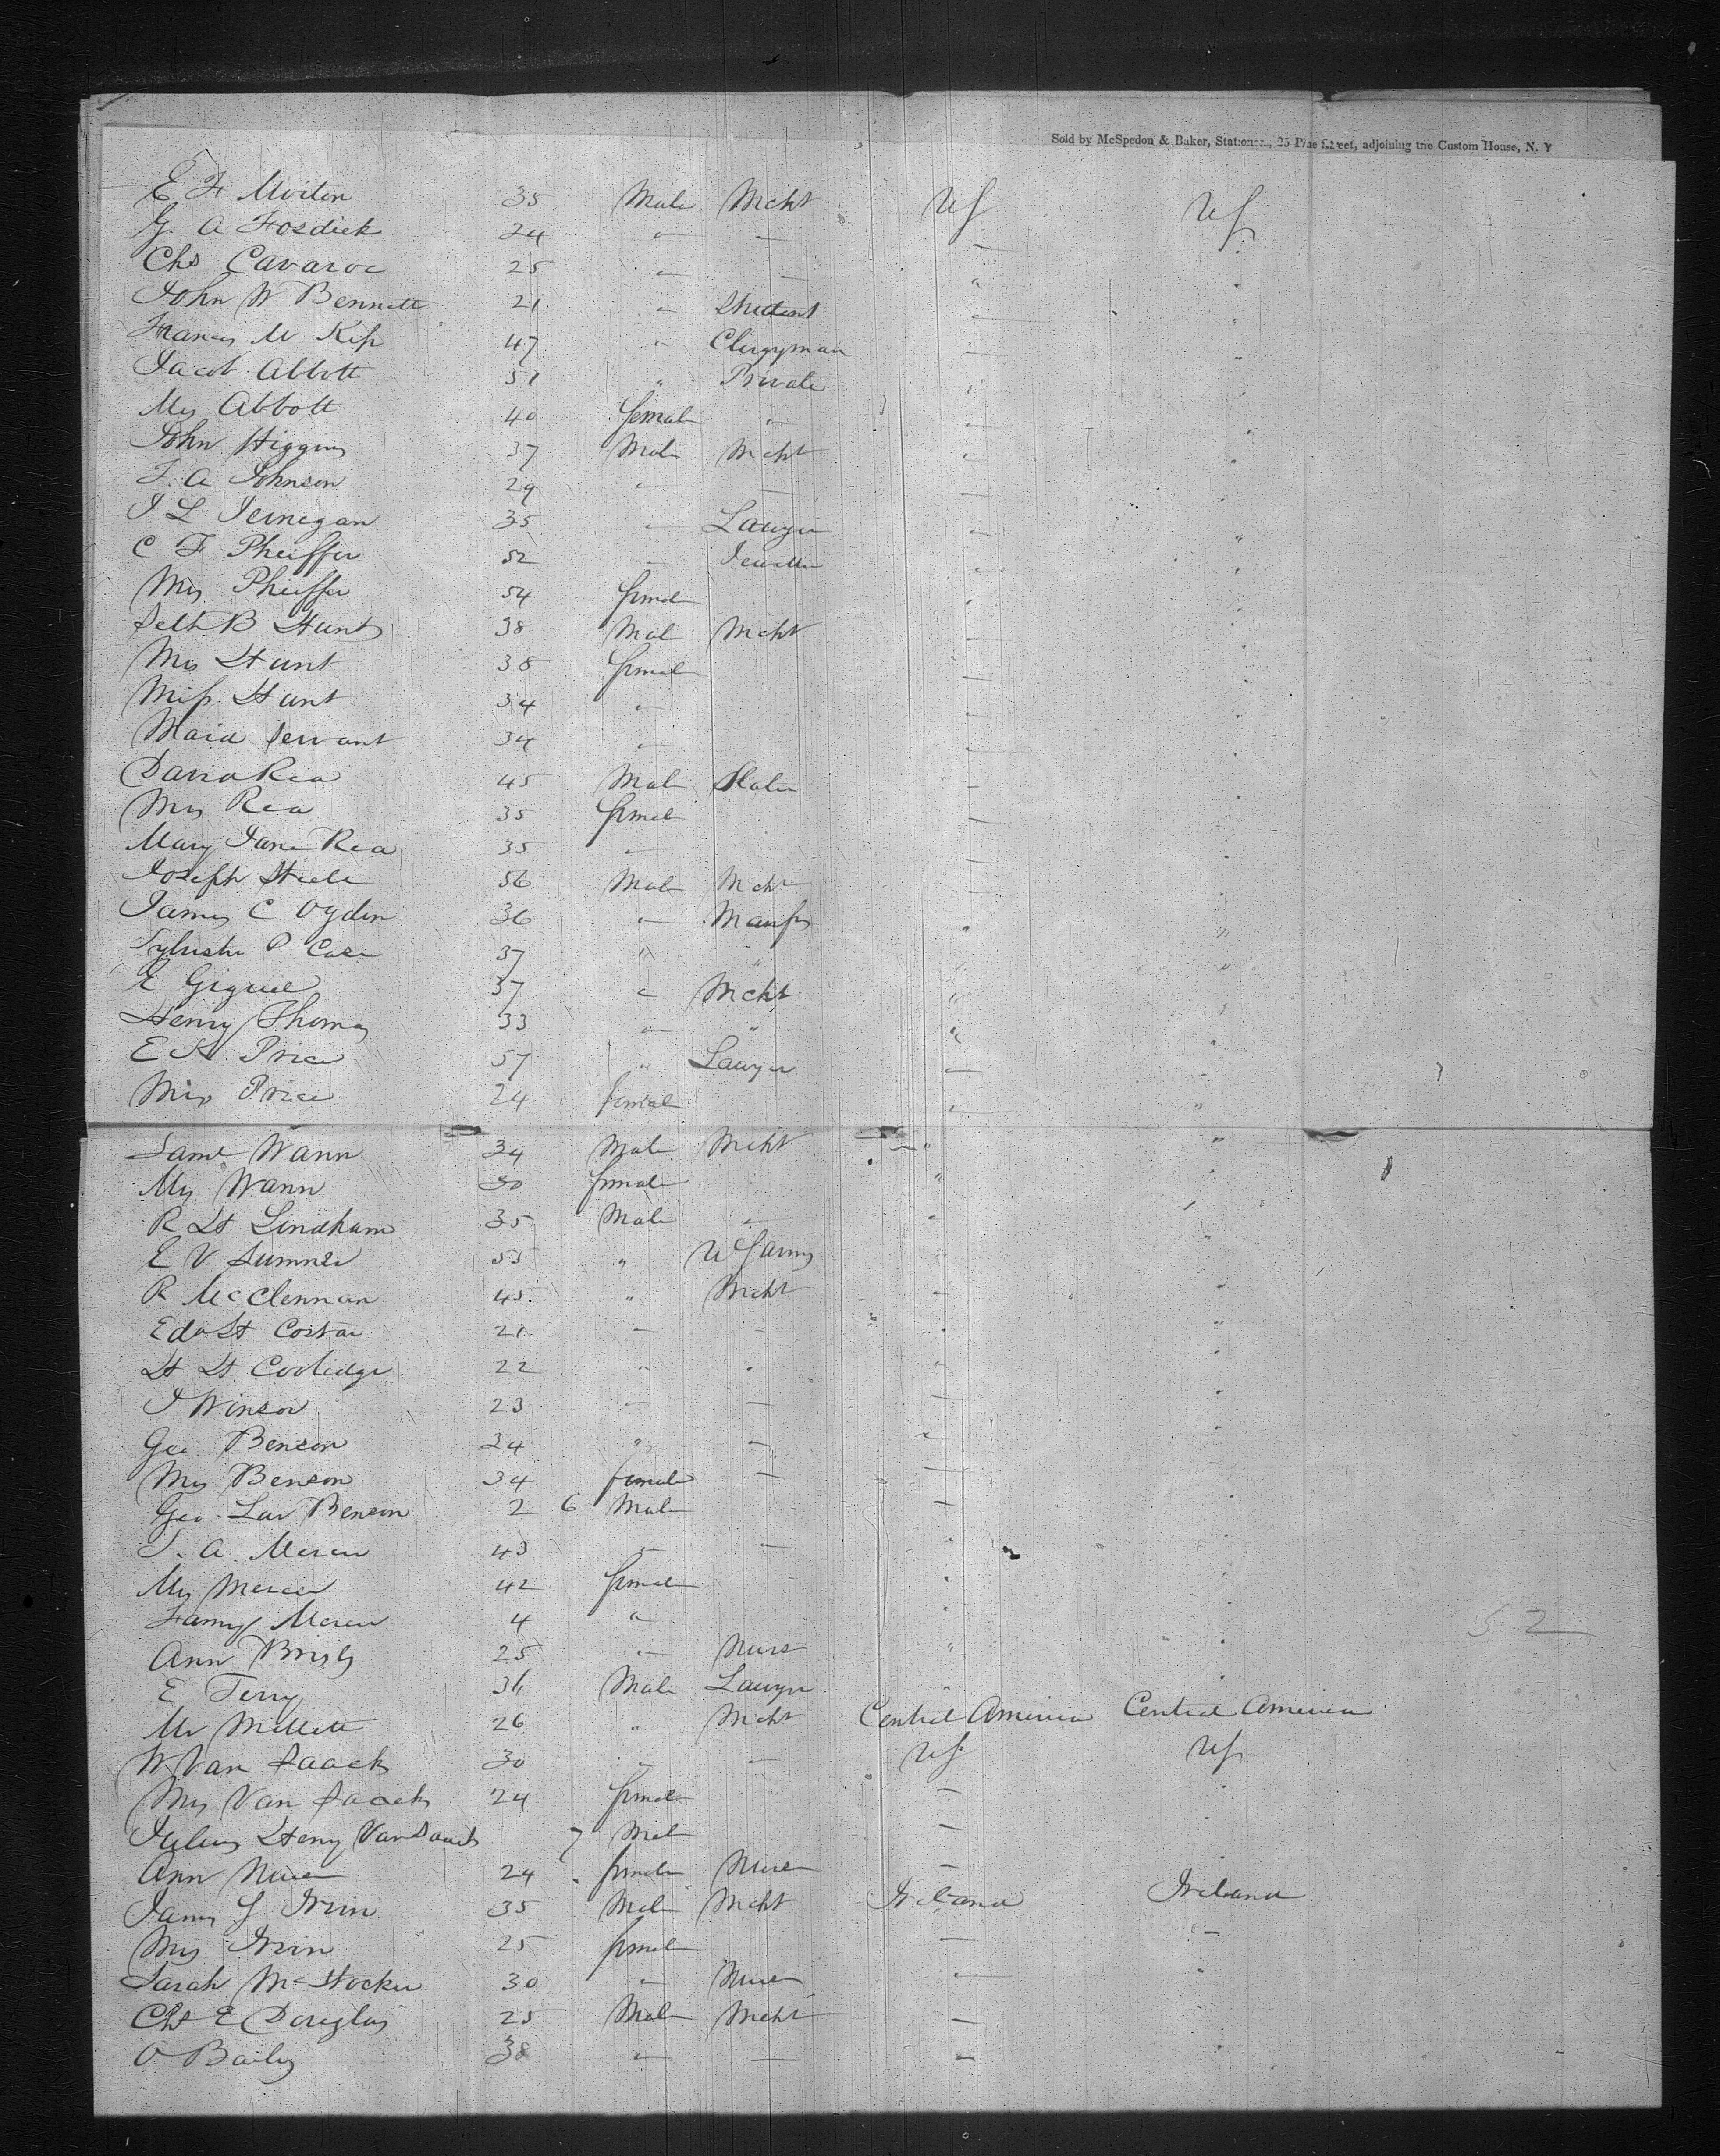 Sold by McSpedon & Baker, Stationers, 25 Pine Street, adjoining the Custom House, N. Y
E F 35 Male Mcht US US
G. A Fosdick 24 " —
Chs Cavaroc 25 — —
John W Bennett 21 — Student
Francis M Kip 47 " Clergyman
Jacob Abbott 51 " Private
Mrs Abbott 40 female "
John Higgins 37 Male Mcht
F. A Johnson 29 — —
J L Jernegan 35 — Lawyer
C F Pheiffer 52 — Jeweller
Mrs Pheiffer 54 female
Seth B Hunt 38 Male Mcht
Mrs Hunt 38 female
Miss Hunt 34 —
Maid Servant 34 —
David Rea 45 Male
Mrs Rea 35 female
Mary Jane Rea 35 —
Joseph Steele 56 Male Mcht
James C Ogden 36 — Manfr
Sylvester P Case 37 " "
E 37 " Mcht
Henry Thomas 33 — "
E K Price 57 " Lawyer
Miss Price 24 female
Saml Wann 34 Male Mcht
Mrs Wann 30 female
R H 35 Male —
E V Sumner 55 " US Army
R McClennan 45 " Mcht
Edw H Costar 21 — —
H H Coolidge 22 " "
J Winsor 23 — —
Geo Benson 34 " —
Mrs Benson 34 female —
Geo Benson 2 6 Male
S. A Mercer 43 — —
Mrs Mercer 42 female
Fanny Mercer 4 "
Ann 25 — Nurse
E Terry 36 Male Lawyer
Mr Millett 26 " Mcht Central America Central America
W Van 30 — — US US
Mrs Van 24 female
Julius Henry Van 7 Male
Ann Nurse 24 female Nurse
James S Irvin 35 Male Mcht Ireland Ireland
Mrs Irvin 25 female — —
Sarah McStocker 30 — Nurse — "
Chs E Douglas 25 Male Mcht —
O Bailey 38 — — —
52